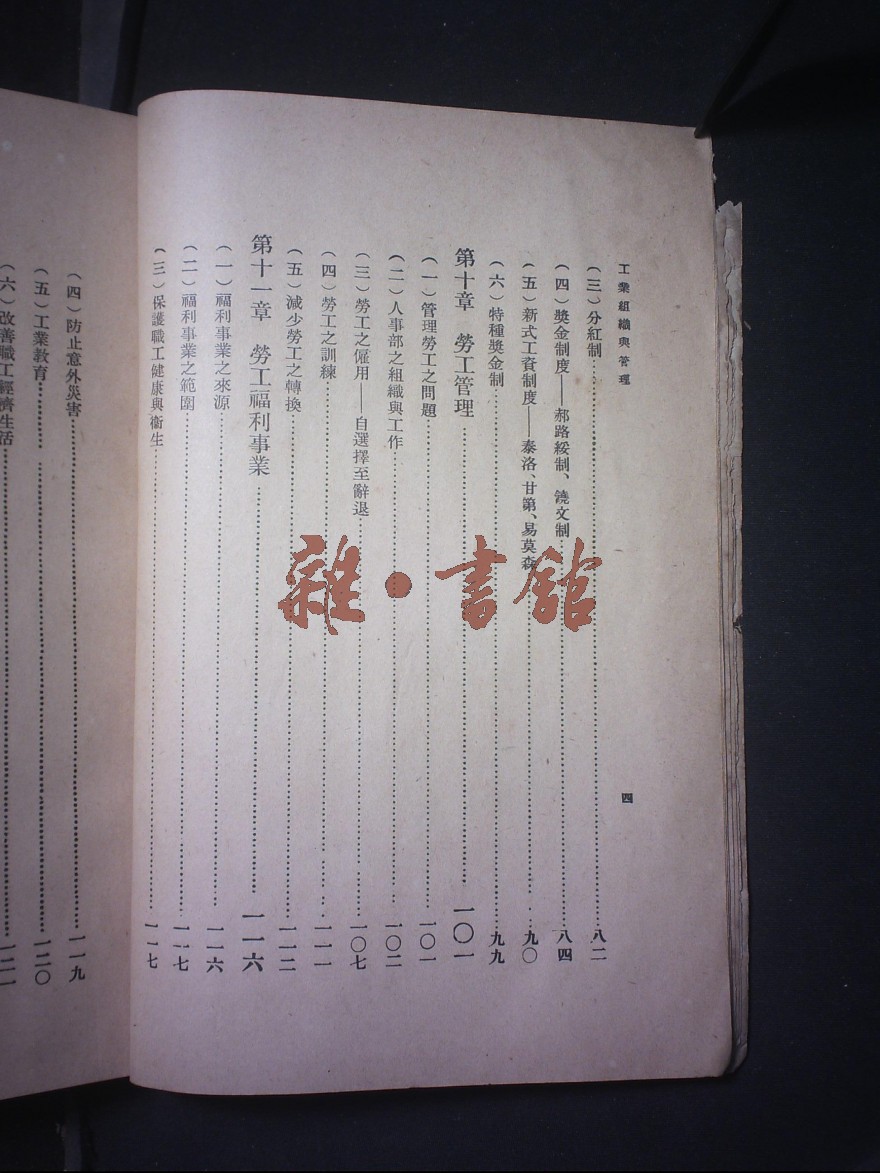 工業組織與管理
（三）分紅制 八二
（四）獎金制度——郝路綏制、饒文制 八四
（五）新式工資制度——泰洛、甘第、易莫森 九〇
（六）特種獎金制 九九
第十章　勞工管理 一〇一
（一）管理勞工之問題 一〇一
（二）人事部之組織與工作 一〇二
（三）勞工之僱用——自選擇至辭退 一〇七
（四）勞工之訓練 一一一
（五）減少勞工之轉換 一一二
第十一章　勞工福利事業 一一六
（一）福利事業之來源 一一六
（二）福利事業之範圍 一一七
（三）保護職工健康與衞生 一一七
四
（四）防止意外災害 一一九
（五）工業教育 一二〇
（六）改善職工經濟生活
雜・書館